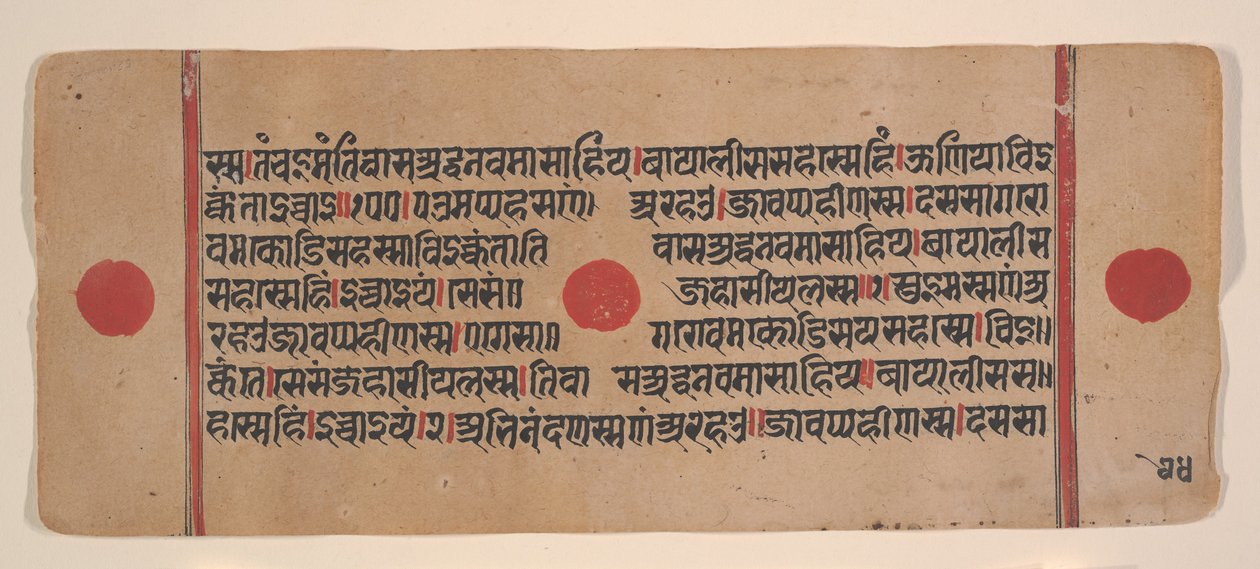 स्स।तंचइमंतिवासअद्धनवमासाहिंय।बायालीससहास्सहिं।ऊणियाविइ
क्कंताइच्चाइ॥२००।पउमप्पहसणं। अरहउ।जावप्पहीणस्स।दससागरो
वमकोडिसहस्साविइक्कंताति वासअद्धनवमासाहिय।बायालीस
सहास्सहिं।इच्चाइयं।सेसं॥ जहासीयलस्स॥१।सुइमस्सणंअ
रहउजावप्पहीणस्स।एगेसा॥ गरोवमकोडिसयसहास्स।विइ॥
क्कंते।सेसंजहासीयलस्स।तिवा सअद्धनवमासाहिय॥बायालीसस॥
हास्सहिं।इच्चाइयं।२।अभिनंदणस्सणंअरहउ॥जावप्पहीणस्स।दससा